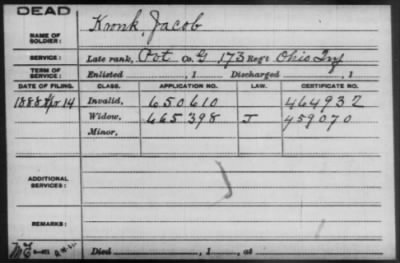 DEAD
Kronk, Jacob
NAME OF SOLDIER:
SERVICE: Late rank, Pvt Co. G 173 Reg't Ohio Inf
TERM OF SERVICE: Enlisted , 1 Discharged , 1
DATE OF FILING. CLASS. APPLICATION NO. LAW. CERTIFICATE NO.
1888 Apr 14 Invalid, 650610 464932
Widow, 665398 J 459070
Minor,
ADDITIONAL SERVICES:
REMARKS:
Died , 1 , at